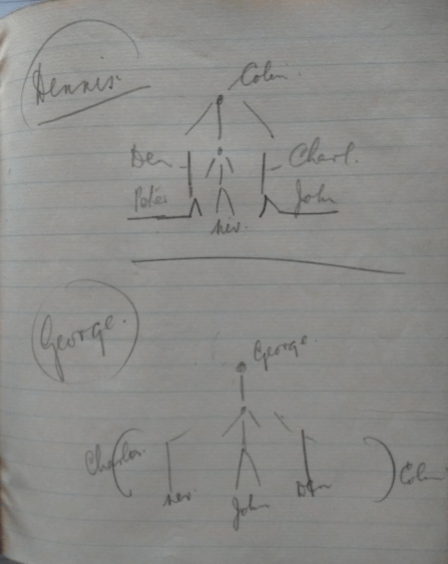 Dennis.
Colin.
Den
Charl.
Peter
John
Nev.
George.
George.
Charles.
Colin
Nev.
John
Den